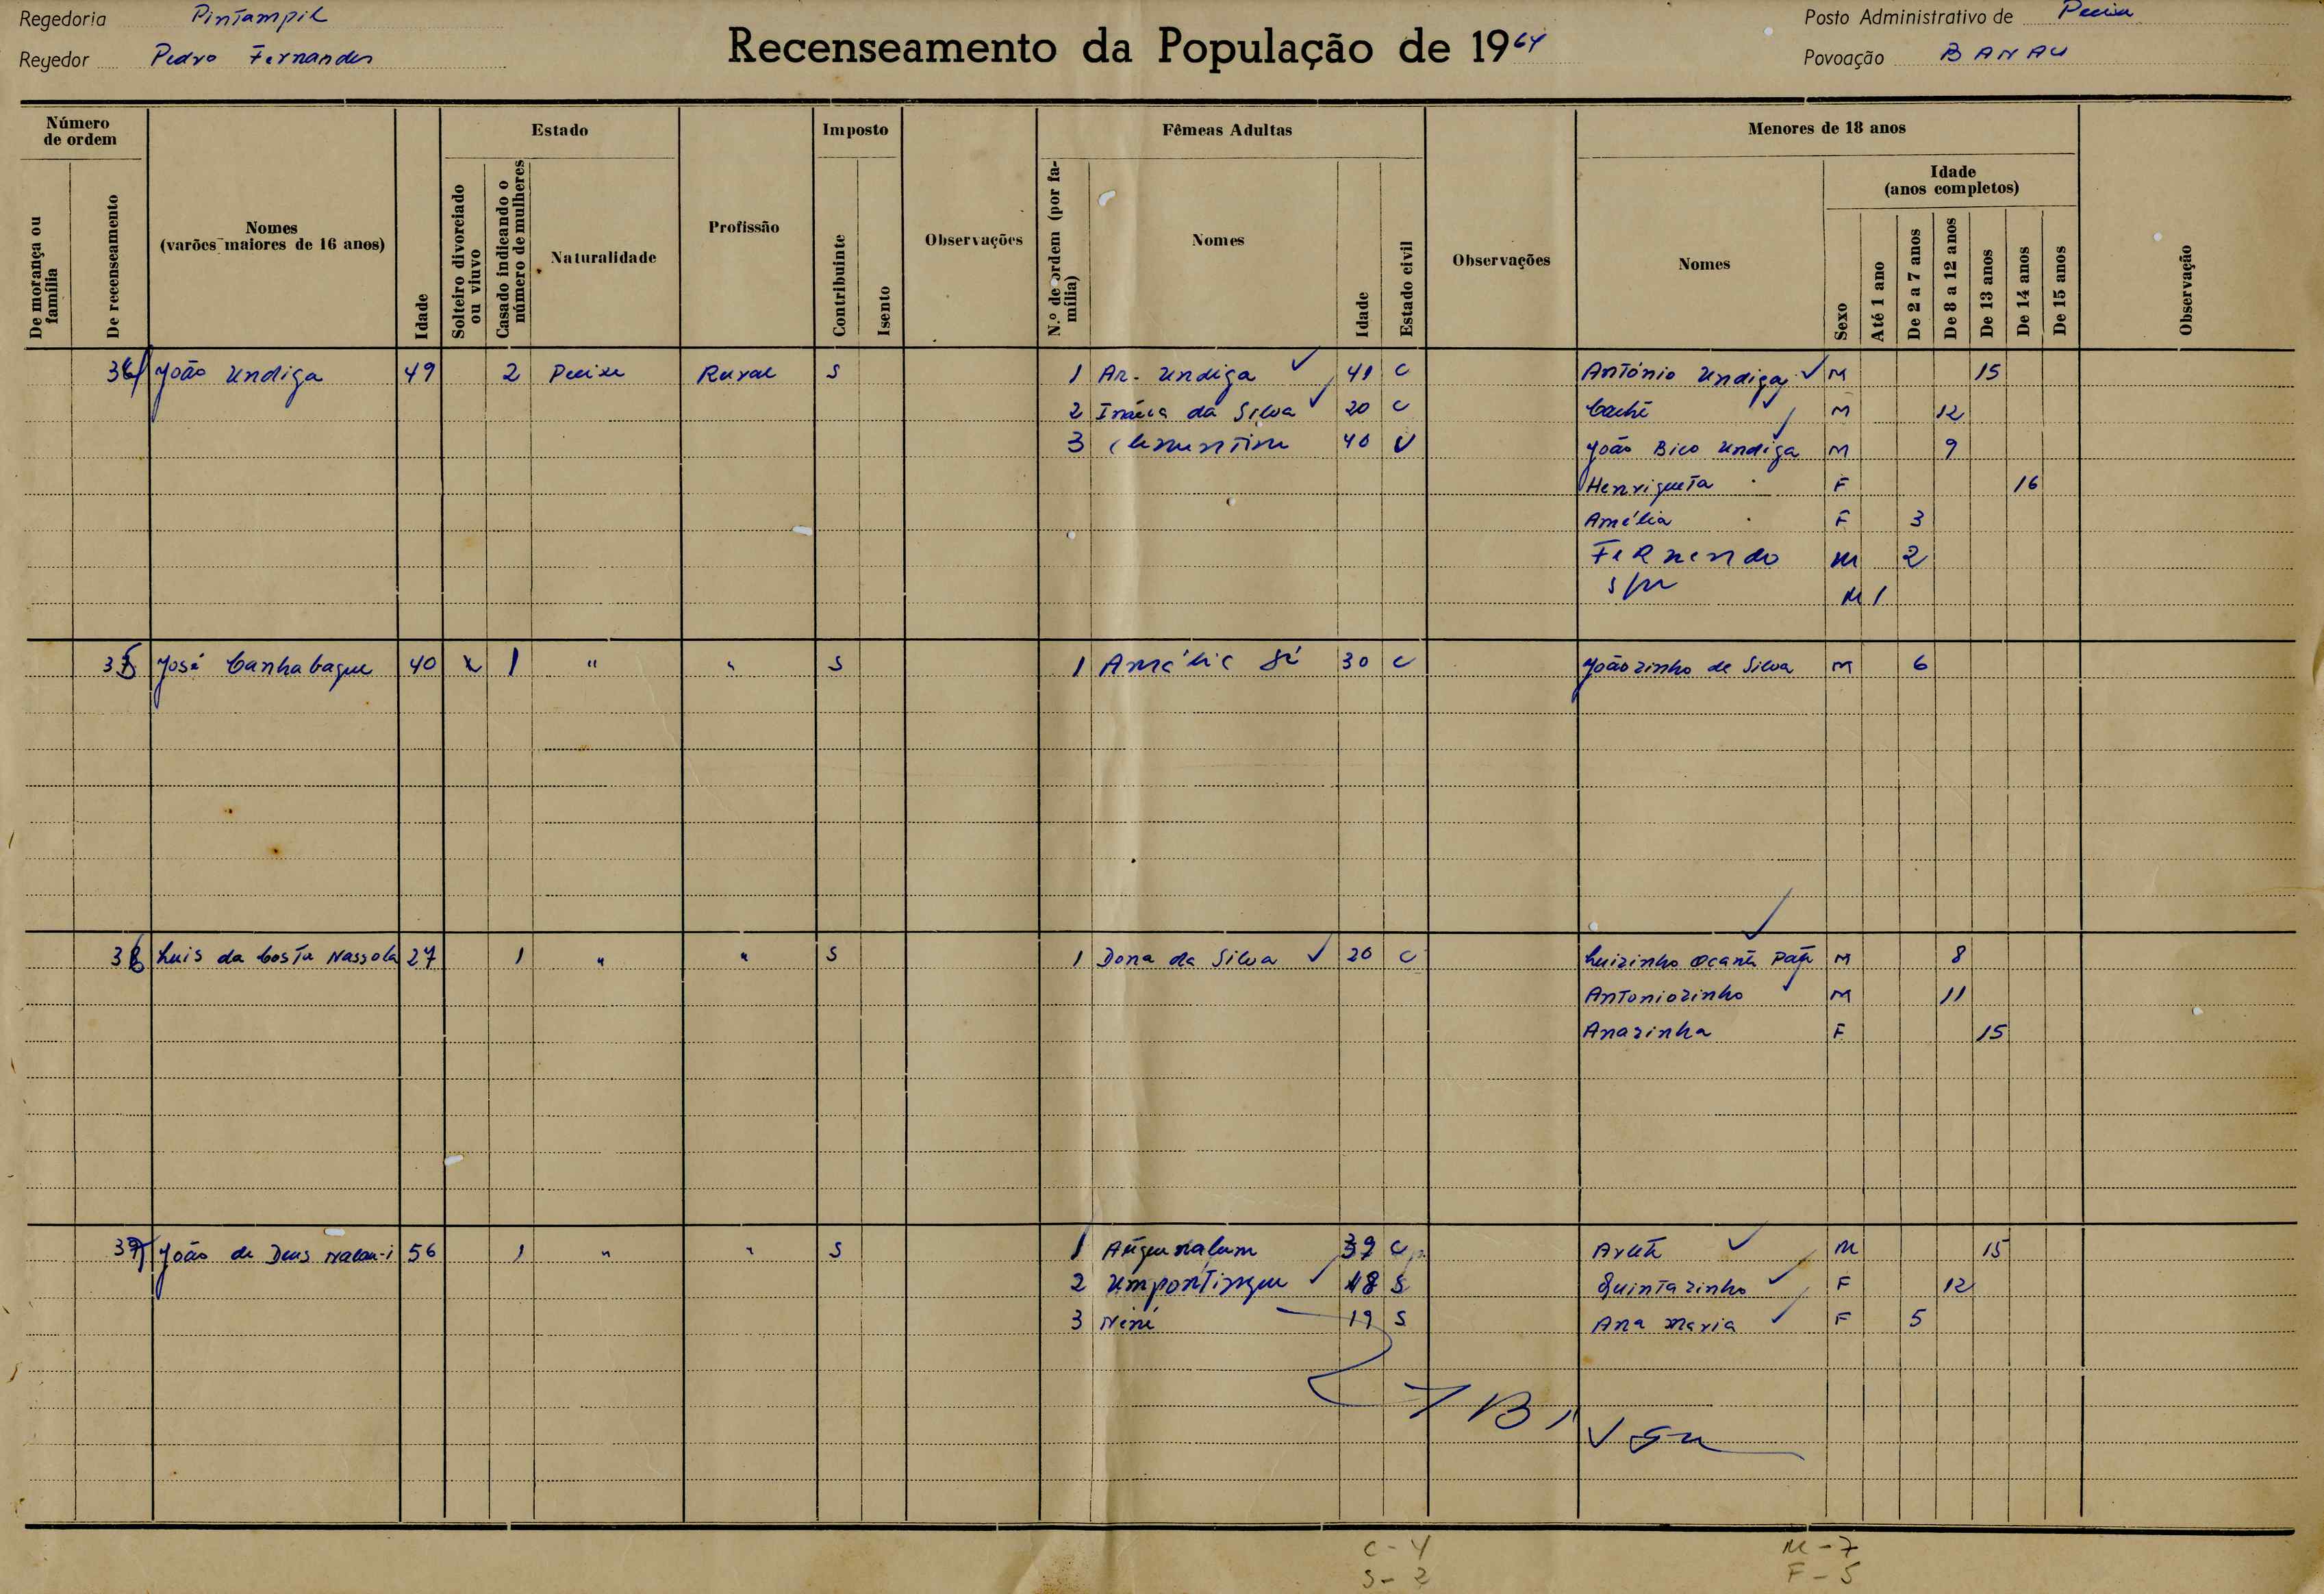 Regedoria Pintampil
Regedor Pedro Fernandes
Recenseamento da População de 1964
Posto Administrativo de Pecixe
Povoação BANAU
Número de ordem
De morança ou família
De recenseamento
Nomes
(varões maiores de 16 anos)
Idade
Estado
Solteiro divorciado ou viuvo
Casado indicando o número de mulheres
Naturalidade
Profissão
Imposto
Contribuinte
Isento
Observações
Fêmeas Adultas
N.º de ordem (por família)
Nomes
Idade
Estado civil
Observações
Menores de 18 anos
Nomes
Idade
(anos completos)
Sexo
Até 1 ano
De 2 a 7 anos
De 8 a 12 anos
De 13 anos
De 14 anos
De 15 anos
Observação
João Undiga 49 2 Pecixe Rural S 1 An. Undiga 41 C António Undiga M 15
2 Inácia da Silva 20 C Caché M 12
3 Clementina 40 V João Bico Undiga M 9
Henriqueta F 16
Amélia F 3
Fernendo M 2
s/n M 1
José Canhabaque 40 x 1 " " S 1 Amélia Sí 30 C Joãozinho de Silva M 6
Luis da Costa Nassola 27 1 " " S 1 Dona da Silva 20 C Luizinho Ocante M 8
Antoniozinho M 11
Anazinha F 15
João de Deus 56 1 " " S 1 39 C M 15
2 Umpontingue 18 S Quintazinho F 12
3 Nené 19 S Ana Maria F 5
C - 4
S - 2
M - 7
F - 5